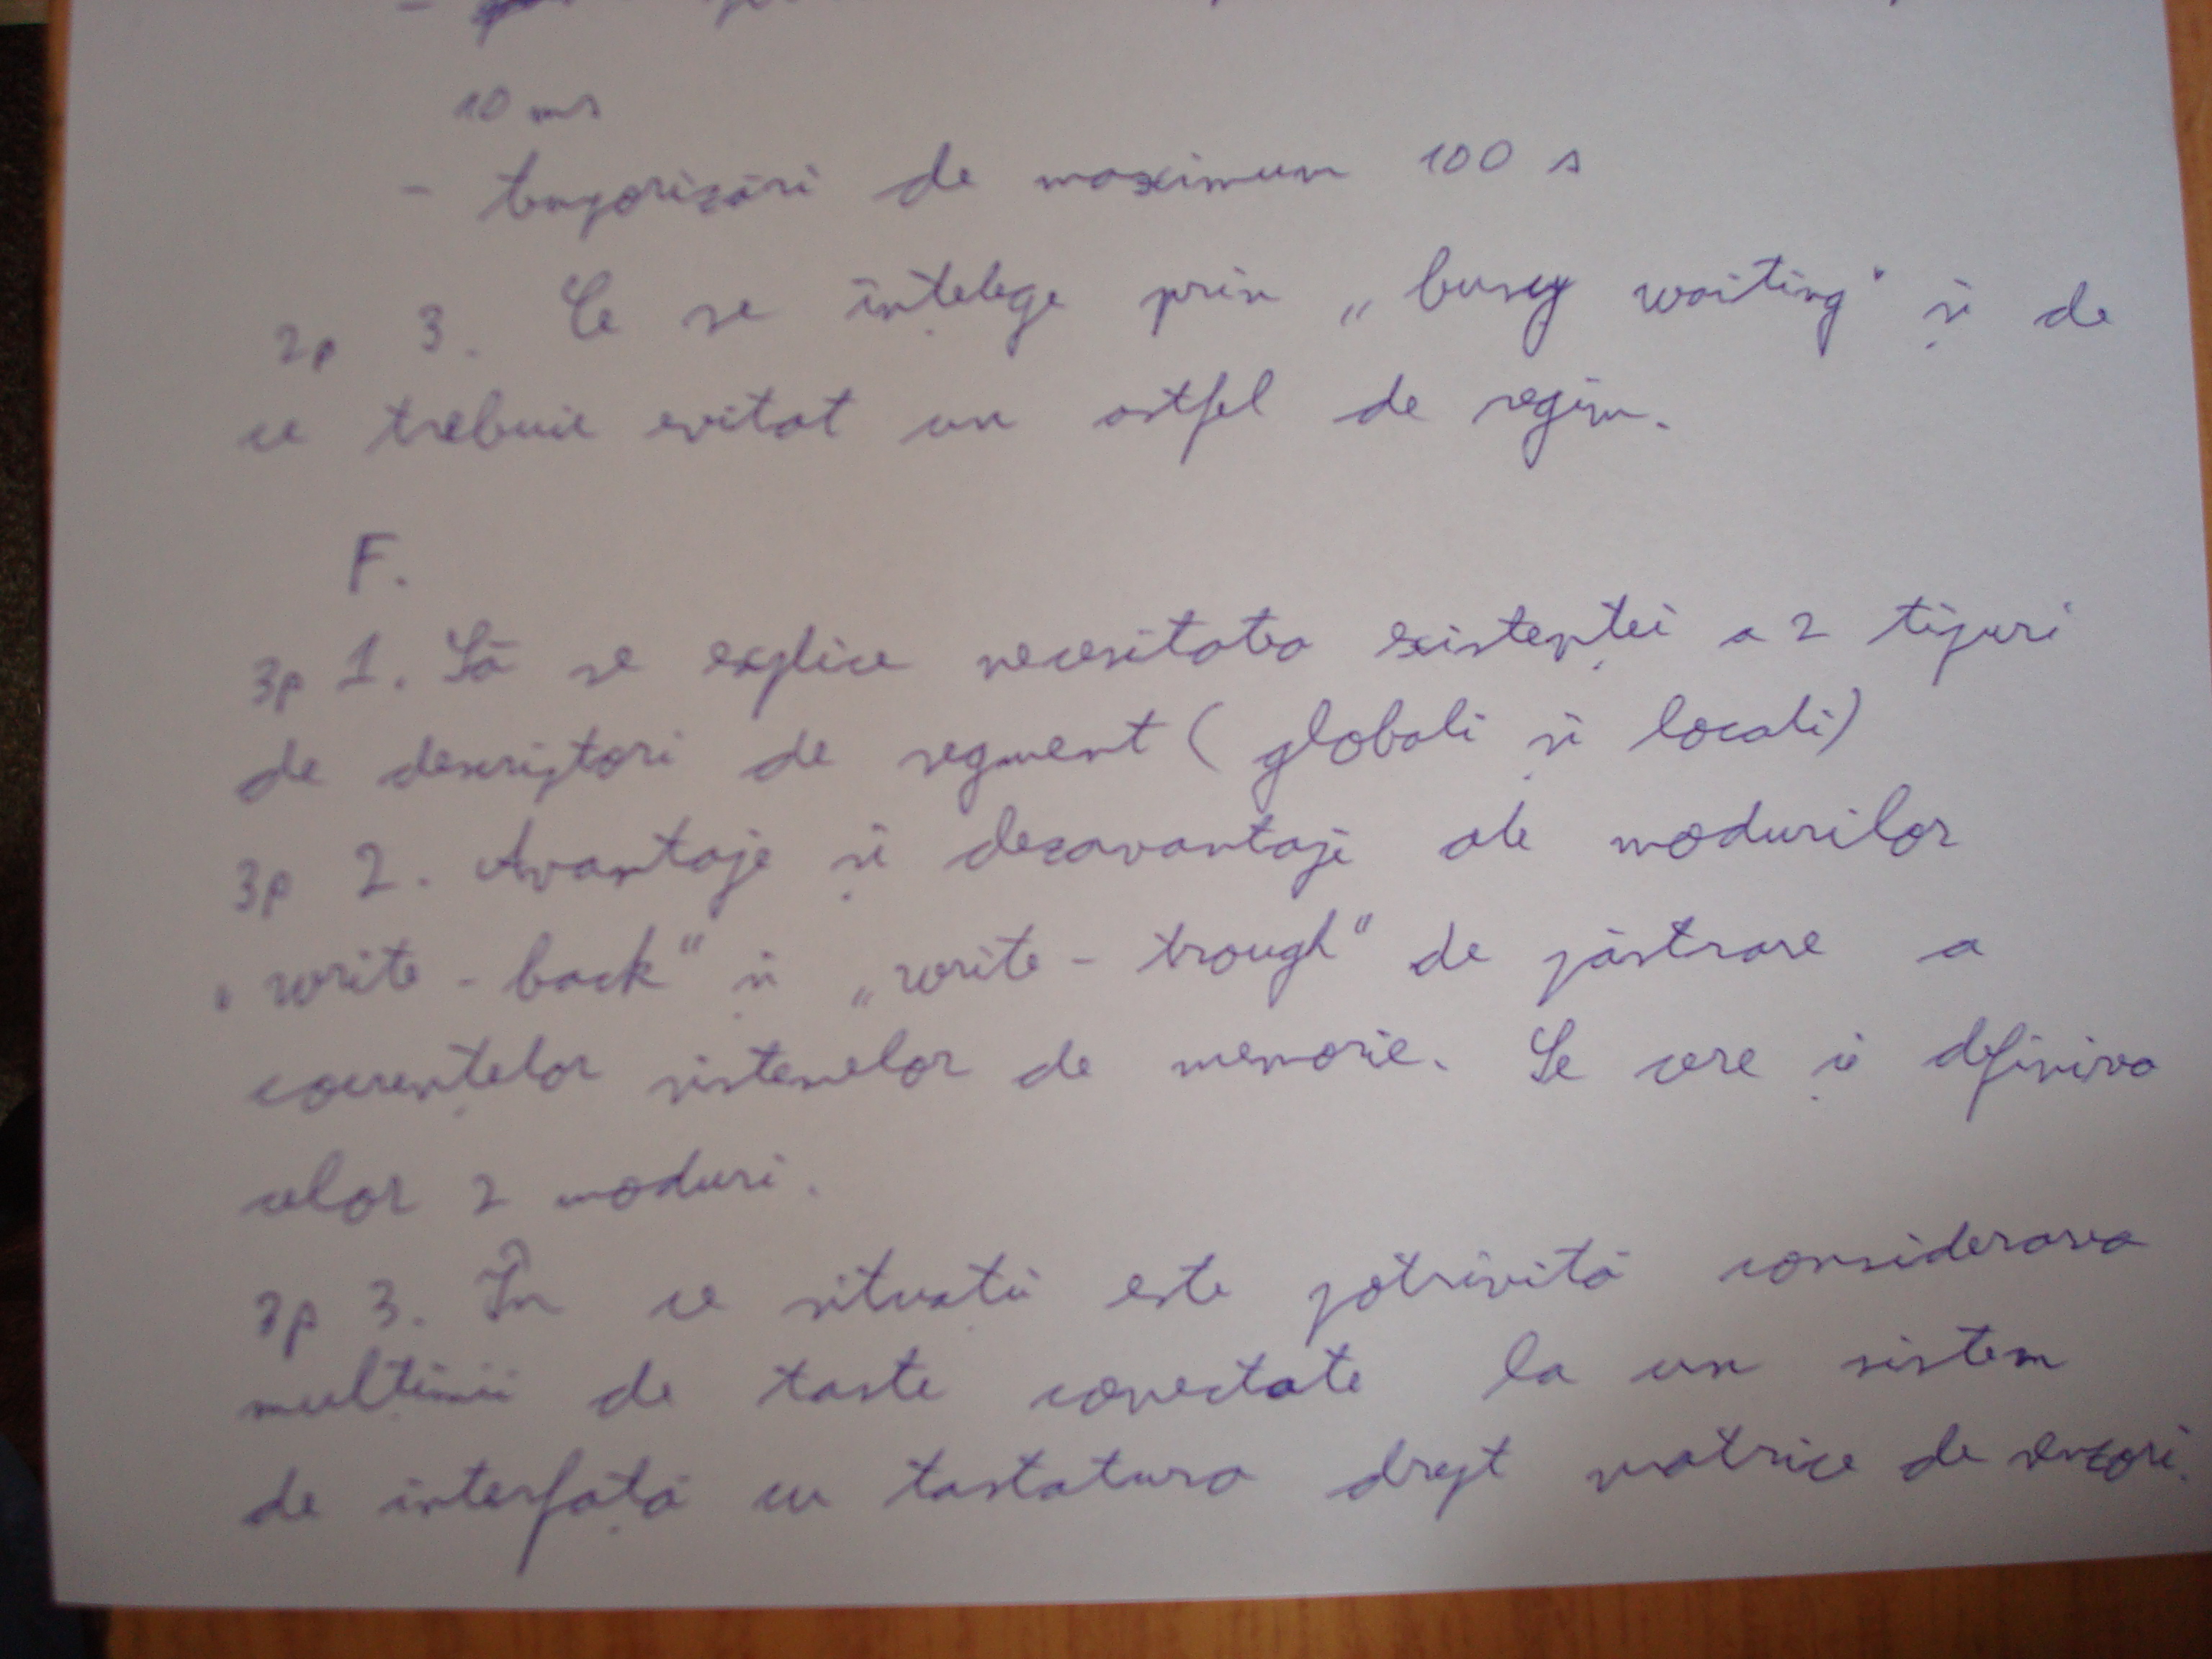 10 ms
- temporizări de maximum 100 s
2p 3. Ce se înțelege prin „busy waiting" și de
ce trebuie evitat un astfel de regim.
F.
3p 1. Să se explice necesitatea existenței a 2 tipuri
de descriptori de segment (globali și locali)
3p 2. Avantaje și dezavantaje ale modurilor
„write - back" și „write - trough" de păstrare a
coerențelor sistemelor de memorie. Se cere și definirea
celor 2 moduri.
3p 3. În ce situații este potrivită considerarea
mulțimii de taste conectate la un sistem
de interfață cu tastatura drept matrice de senzori.